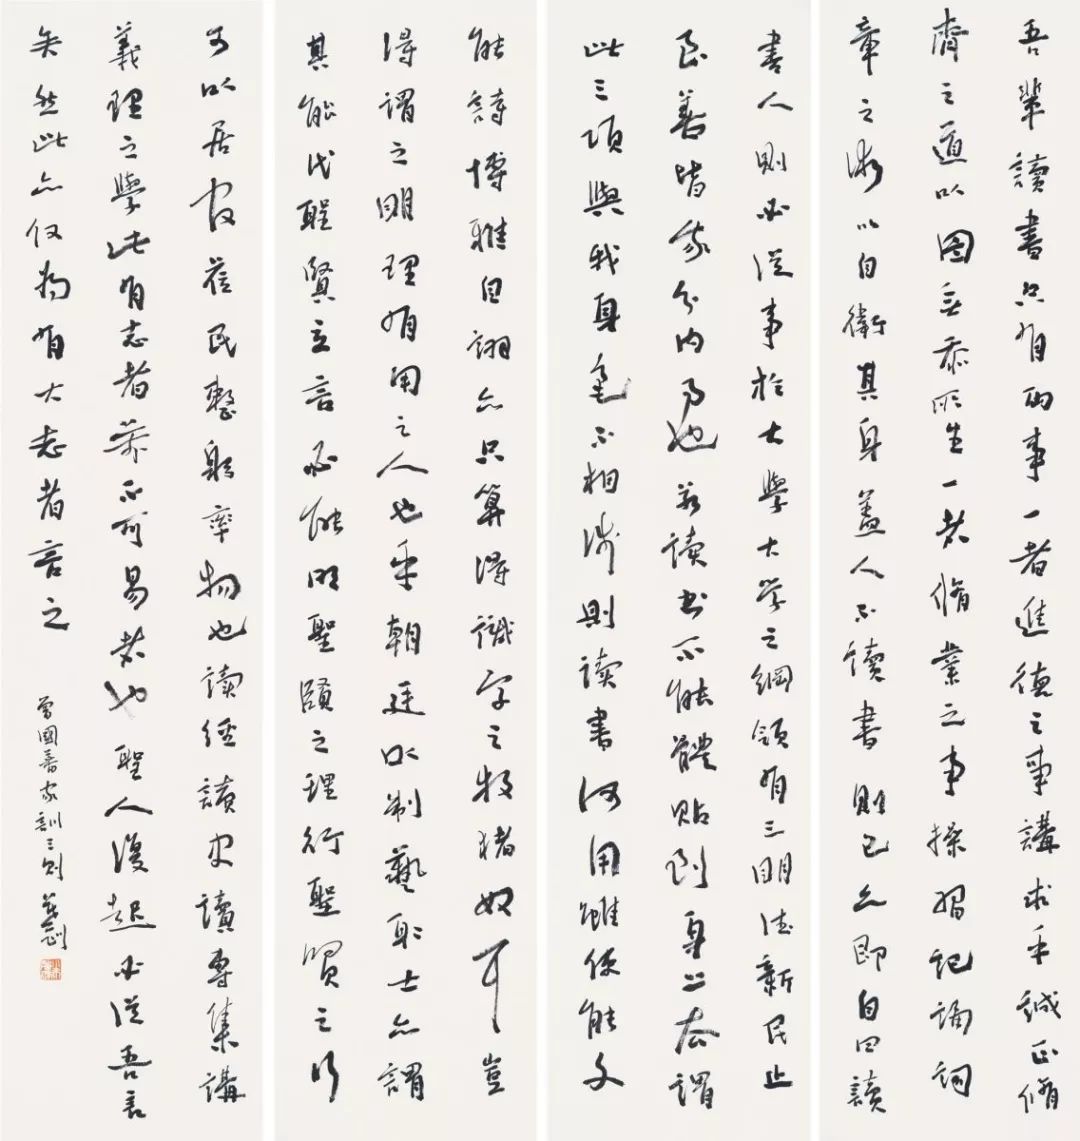 吾輩讀書只有兩事一者進德之事講求乎誠正脩
齊之道以圖無忝所生一者脩業之事操習記誦詞
章之術以自衛其身蓋人不讀書則已亦即自曰讀
書人則必從事於大學大學之綱領有三明德新民止
至善皆我分內事也若讀書不能體貼到身上去謂
此三項與我身毫不相涉則讀書何用雖使能文
能詩博雅自詡亦只算得識字之牧豬奴耳豈
得謂之明理有用之人也乎朝廷以制藝取士亦謂
其能代聖賢立言必能明聖賢之理行聖賢之行
可以居官蒞民整躬率物也讀經讀史讀專集講
義理之學此有志者萬不可易者也聖人復起必從吾言
矣然此亦仅為有大志者言之
曾國藩家訓三則